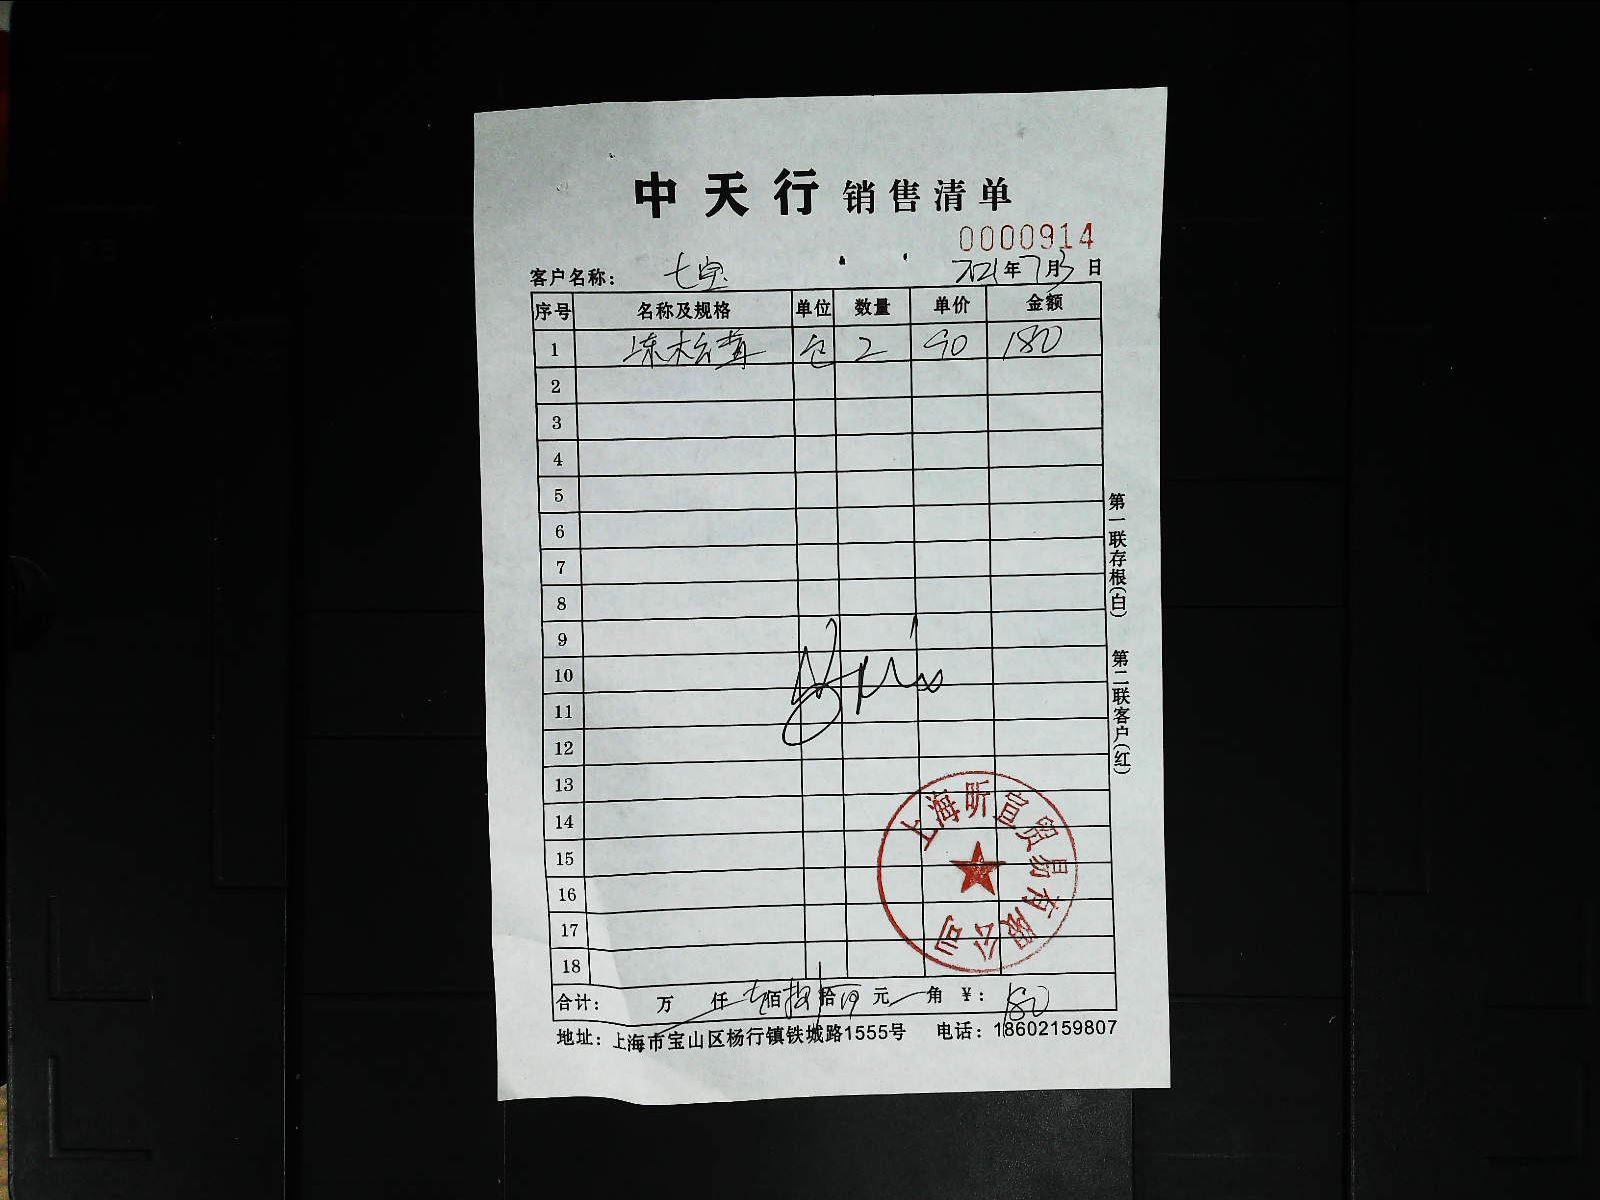 中天行 销售清单
0000914
客户名称: 七宝 2021年7月3日
序号 名称及规格 单位 数量 单价 金额
1 冻松茸 包 2 90 180
2
3
4
5
6
7
8
9
10
11
12
13
14
15
16
17
18
合计: 万 仟 壹佰捌拾 元 角 ¥: 180
地址: 上海市宝山区杨行镇铁城路1555号 电话: 18602159807
第一联存根(白) 第二联客户(红)
上海昕宣贸易有限公司